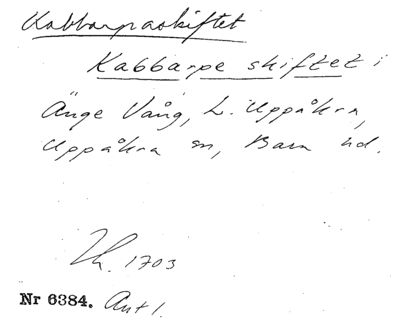 Kabbarpaskiftet
Kabbarpe skiftet i
Änge Vång, L. Uppåkra,
Uppåkra sn, Bara hd.
Lh. 1703
Nr 6384. Ant 1.